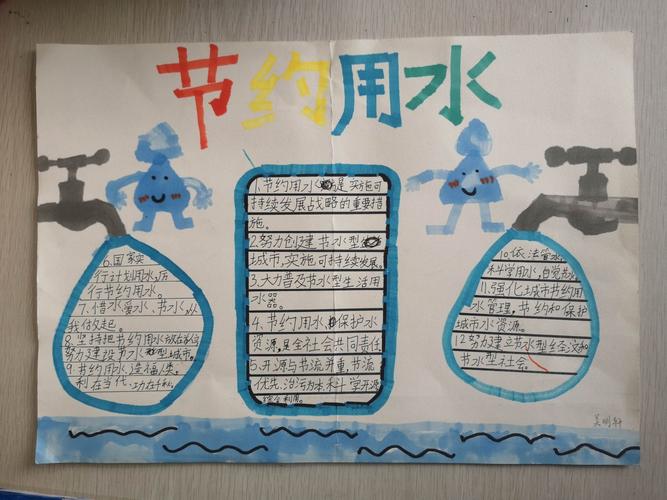 节约用水
1.节约用水是实施可
持续发展战略的重要措
施。
2.努力创建节水型
城市,实施可持续发展。
3.大力普及节水型生活用
水器。
4、节约用水保护水
资源,是全社会共同责任
5.开源与节流并重,节流
优先、治污为本、科学开源
综合利用。
6.国家实
行计划用水,厉
行节约用水。
7.惜水、爱水、节水,从
我做起。
8.坚持把节约用水放在首位
努力建设节水型城市。
9.节约用水,造福人类。
利在当代、功在千秋。
10.依法管水
科学用水,自觉节水
11.强化城市节约用
水管理,节约和保护
城市水资源。
12.努力建立节水型经济和
节水型社会。
吴明轩